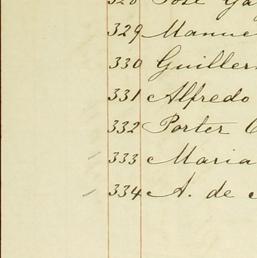 328 José
329 Manue
330 Guiller
331 Alfredo
332 Porter
333 Maria
334 A. de